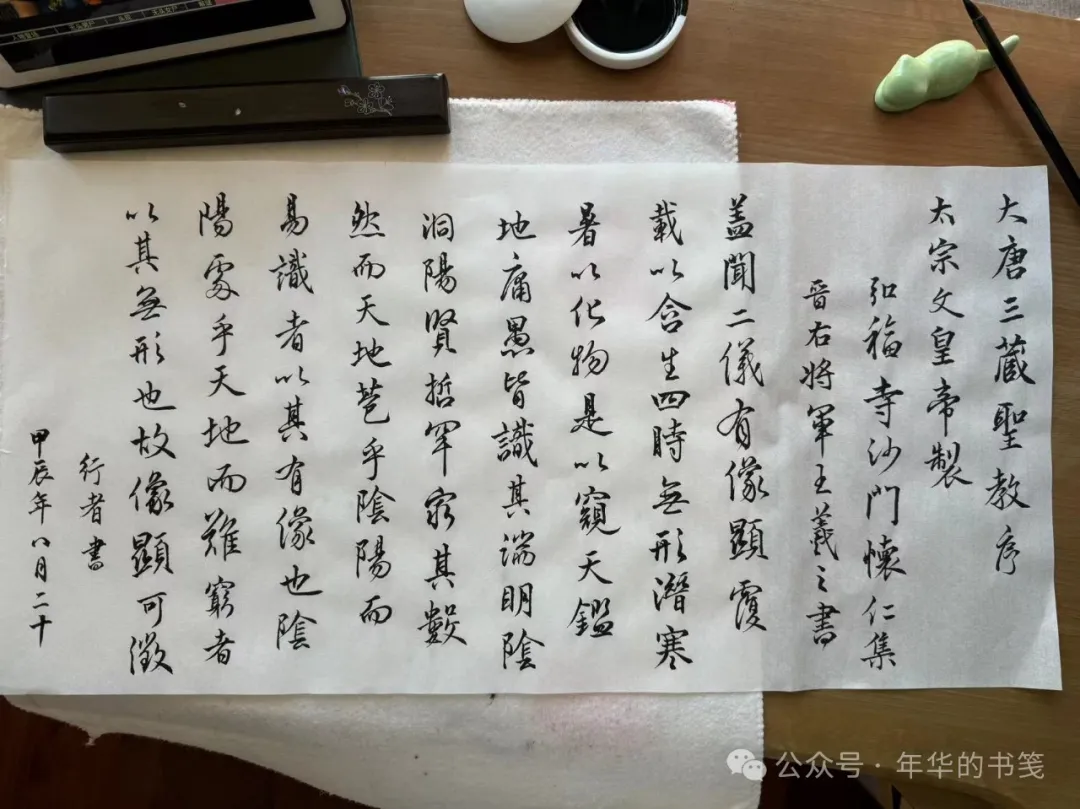 大唐三藏聖教序
太宗文皇帝製
弘福寺沙門懷仁集
晉右將軍王羲之書
蓋聞二儀有像顯覆
載以含生四時無形潛寒
暑以化物是以窺天鑑
地庸愚皆識其端明陰
洞陽賢哲罕窮其數
然而天地苞乎陰陽而
易識者以其有像也陰
陽處乎天地而難窮者
以其無形也故像顯可徵
行者書
甲辰年八月二十
公众号·年华的书笺